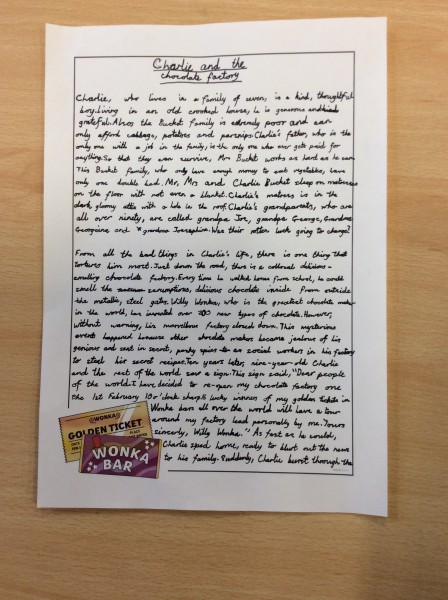 Charlie and the
chocolate factory
Charlie, who lives in a family of seven, is a kind, thoughtful
boy. Living in an old crooked house, he is generous and
grateful. Also the Bucket family is extremely poor and can
only afford cabbage, potatoes and parsnips. Charlie's father, who is the
only one with a job in the family, is the only one who ever gets paid for
anything. So that they can survive, Mr Bucket works as hard as he can.
This Bucket family, who only have enough money to eat vegetables, have
only one double bed. Mr, Mrs and Charlie Bucket sleep on matresses
on the floor with not even a blanket. Charlie's matress is in the
dark, gloomy attic with a hole in the roof. Charlie's grandparents, who are
all over ninety, are called grandpa Joe, grandpa George, Grandma
Georgina and grandma Josesephine. Was their rotten luck going to change?
From all the bad things in Charlie's life, there is one thing that
tortures him most. Just down the road, there is a collosal delicious-
smelling chocolate factory. Every time he walked home from school, he could
smell the scrumptious, delicious chocolate inside from outside
the metallic, steel gates. Willy Wonka, who is the greatest chocolate maker
in the world, has invented over 200 new types of chocolate. However,
without warning, his marvellous factory closed down. This mysterious
event happened because other chocolate makers became jealous of his
genious and sent in secret, spies as social workers in his factory
to steal his secret recipes. Ten years later, nine-year-old Charlie
and the rest of the world saw a sign. This sign said, "Dear people
of the world. I have decided to re-open my chocolate factory one
the 1st February 10 o'clock sharp. 5 lucky winners of my golden tickets in
Wonka bars all over the world will have a tour
around my factory lead personally by me. Yours
sincerly, Willy Wonka." As fast as he could,
Charlie sped home, ready to blurt out the news
to his family. Suddenly, Charlie burst through the
WONKA
GOLDEN TICKET
WONKA
BAR